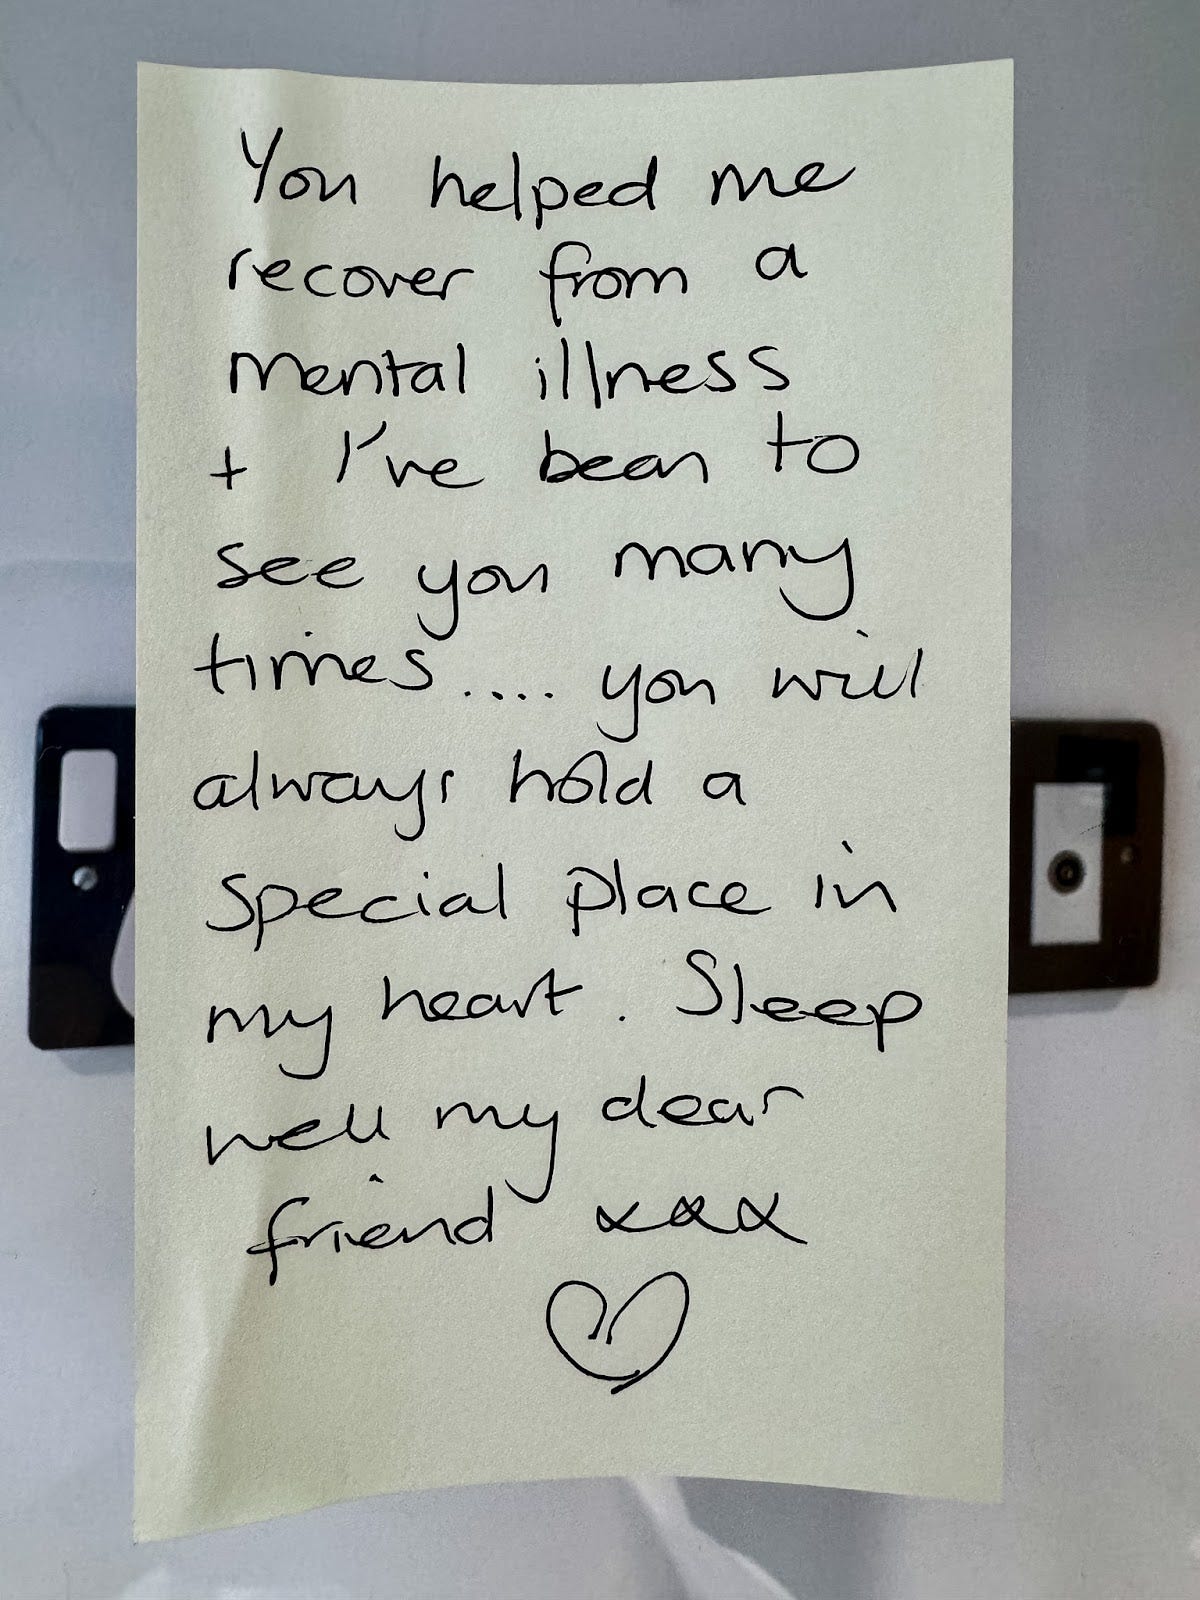 You helped me
recover from a
mental illness
+ I've been to
see you many
times.... you will
always hold a
special place in
my heart. Sleep
well my dear
friend xxx